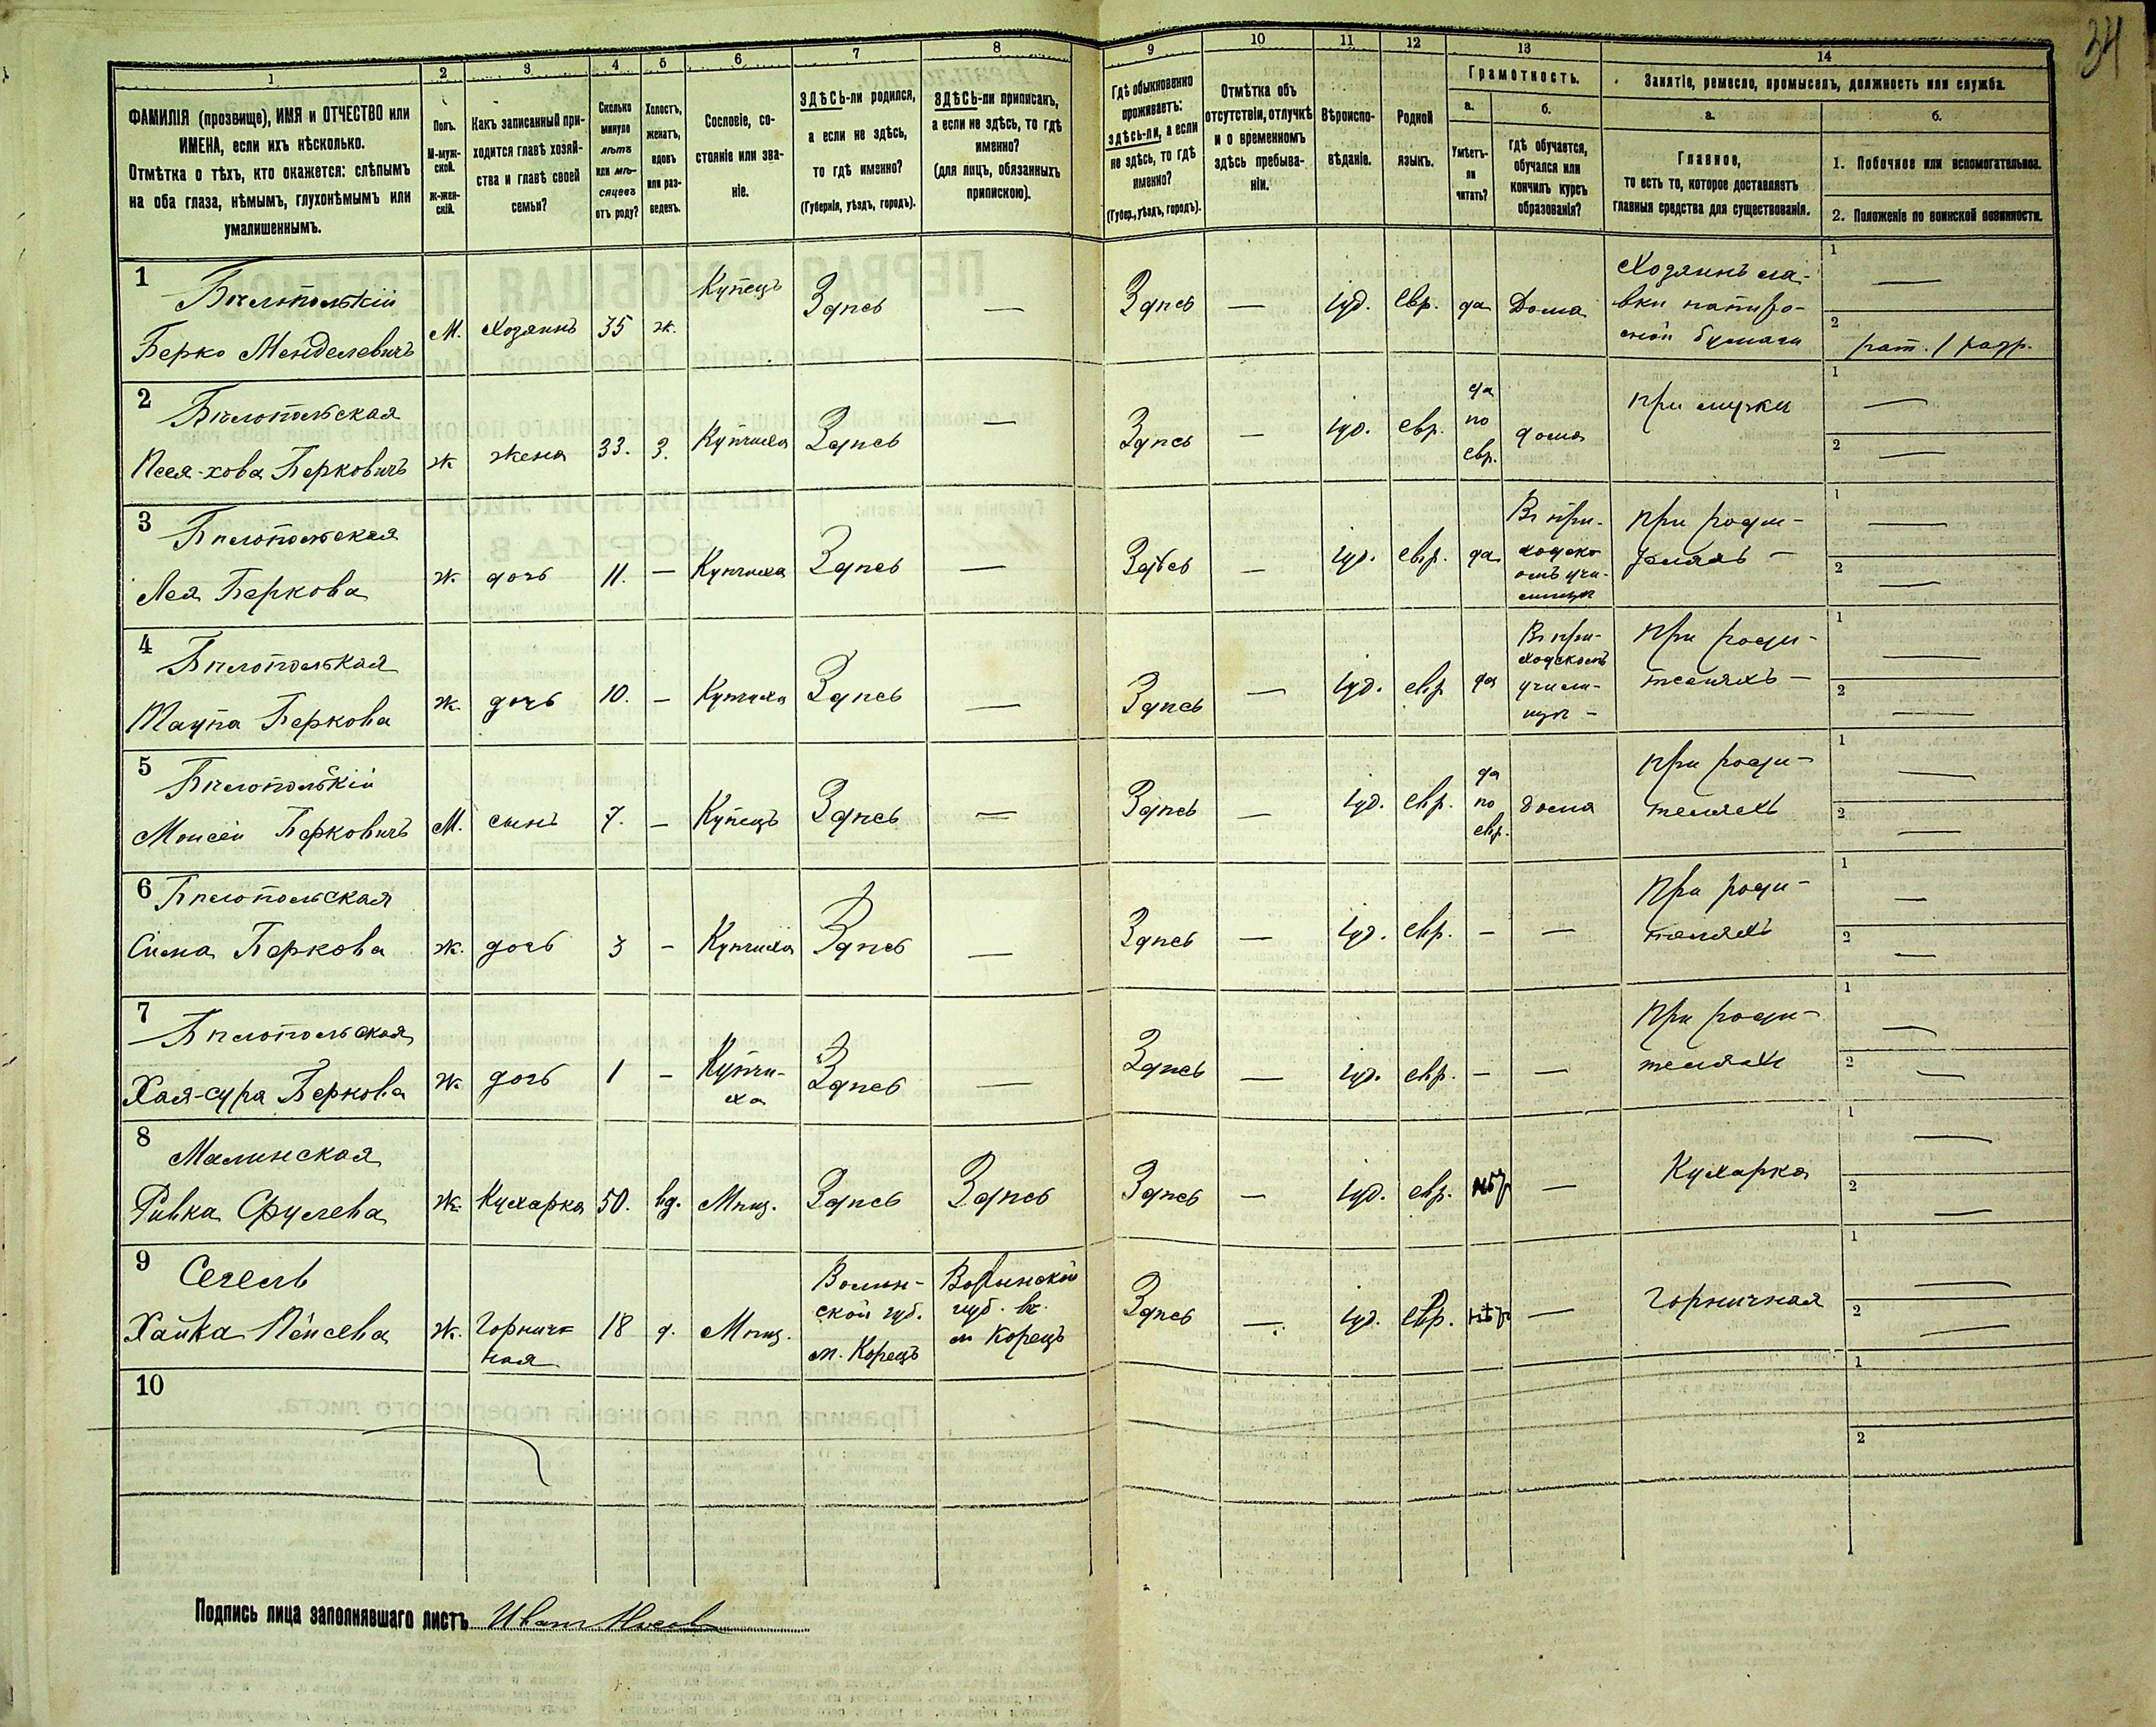 34
1 2 3 4 5 6 7 8 9 10 11 12 13 14
ФАМИЛІЯ (прозвище), ИМЯ и ОТЧЕСТВО или
ИМЕНА, если ихъ нѣсколько.
Отмѣтка о тѣхъ, кто окажется: слѣпымъ
на оба глаза, нѣмымъ, глухонѣмымъ или
умалишеннымъ.
Полъ.
М-муж-
ской.
Ж-жен-
скій.
Какъ записанный при-
ходится главѣ хозяй-
ства и главѣ своей
семьи?
Сколько
минуло
лѣтъ
или мѣ-
сяцевъ
отъ роду?
Холостъ,
женатъ,
вдовъ
или раз-
веденъ.
Сословіе, со-
стояніе или зва-
ніе.
ЗДѢСЬ-ли родился,
а если не здѣсь,
то гдѣ именно?
(Губернія, уѣздъ, городъ).
ЗДѢСЬ-ли приписанъ,
а если не здѣсь, то гдѣ
именно?
(для лицъ, обязанныхъ
припискою).
Гдѣ обыкновенно
проживаетъ:
здѣсь-ли, а если
не здѣсь, то гдѣ
именно?
(Губер., уѣздъ, городъ).
Отмѣтка объ
отсутствіи, отлучкѣ
и о временномъ
здѣсь пребыва-
ніи.
Вѣроиспо-
вѣданіе.
Родной
языкъ.
Грамотность.
а.
Умѣетъ-
ли
читать?
б.
Гдѣ обучается,
обучался или
кончилъ курсъ
образованія?
Занятіе, ремесло, промыселъ, должность или служба.
а.
Главное,
то есть то, которое доставляетъ
главныя средства для существованія.
б.
1. Побочное или вспомогательное.
2. Положеніе по воинской повинности.
1
Бѣлопольскій
Берко Менделевичъ
М. Хозяинъ 35 ж. Купецъ Здѣсь —
Здѣсь — іуд. Евр. да Дома
Хозяинъ ла-
вки папиро-
сной бумаги
1 —
2 рат. 1 разр.
2
Бѣлопольская
Песя-хова Берковичъ
Ж жена 33. З. Купчиха Здѣсь —
Здѣсь — іуд. евр.
да
по
евр.
дома
при мужѣ
1 —
2 —
3
Бѣлопольская
Лея Беркова
Ж. дочь 11. — Купчиха Здѣсь —
Здѣсь — іуд. евр. да
Въ при-
ходско
омъ учи-
лищѣ
При роди-
теляхъ —
1 —
2 —
4
Бѣлополькая
Таупа Беркова
Ж. дочь 10. — Купчиха Здѣсь —
Здѣсь — іуд. евр да
Въ при-
ходскомъ
учили-
щѣ —
При роди-
теляхъ —
1 —
2 —
5
Бѣлопольскій
Моисей Берковичъ
М. сынъ 7. — Купецъ Здѣсь —
Здѣсь — іуд. евр.
да
по
евр.
дома
При роди-
теляхъ
1 —
2 —
6 Бѣлопольская
Сима Беркова
Ж. дочь 3 — Купчиха Здѣсь —
Здѣсь — іуд. евр. — —
При роди-
теляхъ
1 —
2 —
7
Бѣлопольская
Хая-сура Беркова
Ж. дочь 1 —
Купчи-
ха
Здѣсь —
Здѣсь — іуд. евр. — —
При роди-
теляхъ
1 —
2 —
8
Малинская
Ривка Срулева
Ж. Кухарка 50. вд. Мѣщ. Здѣсь Здѣсь
Здѣсь — іуд. евр. нѣт —
Кухарка
1 —
2 —
9 Сегель
Хайка Пейсева
Ж.
Горнич
ная
18 д. Мѣщ.
Волын-
ской губ.
м. Корецъ
Волынской
губ. въ
м Корецъ
Здѣсь — іуд. евр. нѣт —
Горничная
1 —
2 —
10
1
2
Подпись лица заполнявшаго листъ Иванъ